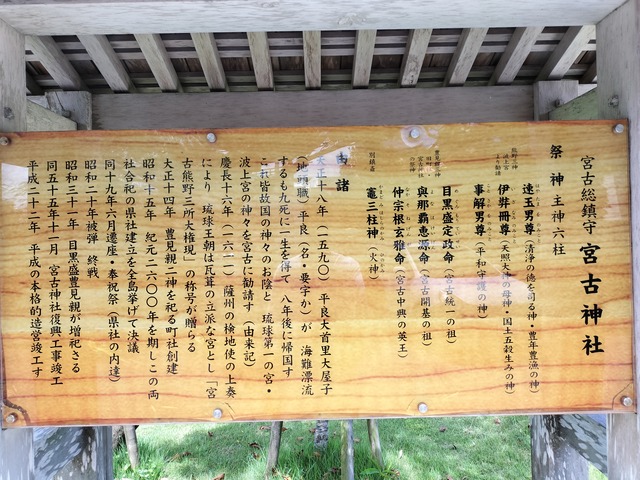 宮古総鎮守 宮古神社
祭神 主神六柱
熊野三神
波上宮
より勧請
速玉男尊(清浄の徳を司る神・豊年豊漁の神)
伊弉冊尊(天照大神の母神・国土五穀生みの神)
事解男尊(平和守護の神)
豊見親三神
旧町社
宮古神社
の祭神
目黒盛定政命(宮古統一の祖)
與那覇恵源命(宮古開基の祖)
仲宗根玄雅命(宮古中興の英王)
別鎮斎
竈三柱神(火神)
由諸
天正十八年(一五九〇)平良大首里大屋子
(地頭職)平良(名・要字か)が 海難漂流
するも九死に一生を得て 八年後に帰国す
これ皆故国の神々のお陰と 琉球第一の宮・
波上宮の神々を宮古に勧請す(由来記)
慶長十六年(一六一一)薩州の検地使の上奏
により 琉球王朝は瓦葺の立派な宮とし「宮
古熊野三所大権現」の称号が贈らる
大正十四年 豊見親二神を祀る町社創建
昭和十五年 紀元二六〇〇年を期しこの両
社合祀の県社建立を全島挙げて決議
同十九年六月遷座・奉祝祭(県社の内達)
昭和二十年被弾 終戦
昭和三十一年 目黒盛豊見親が増祀さる
同五十五年十一月 宮古神社復興工事竣工
平成二十二年 平成の本格的造営竣工す